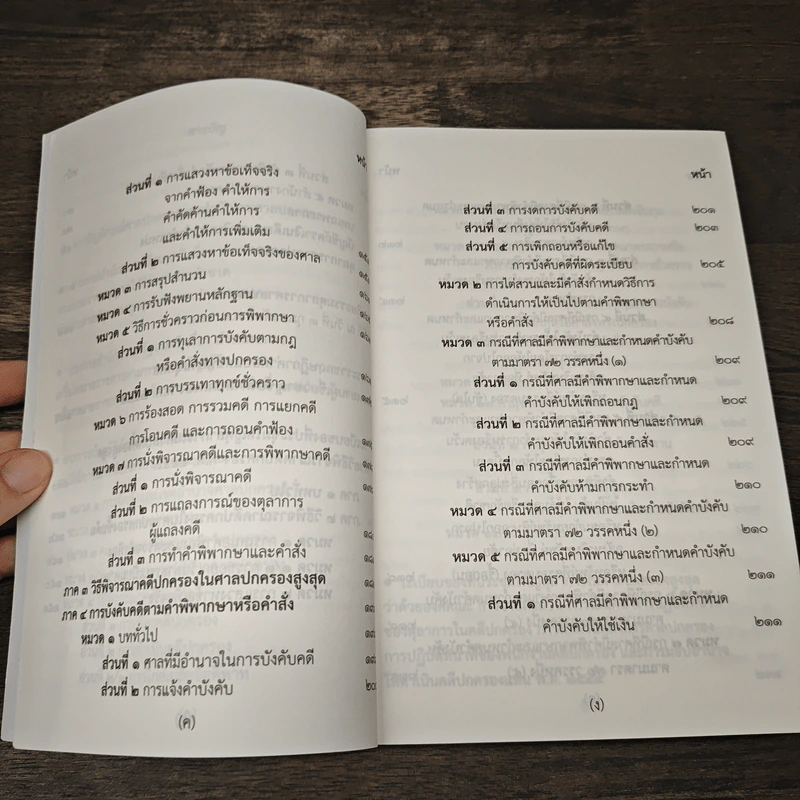 หน้า
ส่วนที่ ๑ การแสวงหาข้อเท็จจริง
จากคำฟ้อง คำให้การ
คำคัดค้านคำให้การ
และคำให้การเพิ่มเติม
ส่วนที่ ๒ การแสวงหาข้อเท็จจริงของศาล
หมวด ๓ การสรุปสำนวน
หมวด ๔ การรับฟังพยานหลักฐาน
หมวด ๕ วิธีการชั่วคราวก่อนการพิพากษา
ส่วนที่ ๑ การทุเลาการบังคับตามกฎ
หรือคำสั่งทางปกครอง
ส่วนที่ ๒ การบรรเทาทุกข์ชั่วคราว
หมวด ๖ การร้องสอด การรวมคดี การแยกคดี
การโอนคดี และการถอนคำฟ้อง
หมวด ๗ การนั่งพิจารณาคดีและการพิพากษาคดี
ส่วนที่ ๑ การนั่งพิจารณาคดี
ส่วนที่ ๒ การแถลงการณ์ของตุลาการ
ผู้แถลงคดี
ส่วนที่ ๓ การทำคำพิพากษาและคำสั่ง
ภาค ๓ วิธีพิจารณาคดีปกครองในศาลปกครองสูงสุด
ภาค ๔ การบังคับคดีตามคำพิพากษาหรือคำสั่ง
หมวด ๑ บททั่วไป
ส่วนที่ ๑ ศาลที่มีอำนาจในการบังคับคดี
ส่วนที่ ๒ การแจ้งคำบังคับ
(ค)
หน้า
ส่วนที่ ๓ การงดการบังคับคดี ๒๐๑
ส่วนที่ ๔ การถอนการบังคับคดี ๒๐๓
ส่วนที่ ๕ การเพิกถอนหรือแก้ไข
การบังคับคดีที่ผิดระเบียบ ๒๐๕
หมวด ๒ การไต่สวนและมีคำสั่งกำหนดวิธีการ
ดำเนินการให้เป็นไปตามคำพิพากษา
หรือคำสั่ง ๒๐๘
หมวด ๓ กรณีที่ศาลมีคำพิพากษาและกำหนดคำบังคับ
ตามมาตรา ๗๒ วรรคหนึ่ง (๑) ๒๐๙
ส่วนที่ ๑ กรณีที่ศาลมีคำพิพากษาและกำหนด
คำบังคับให้เพิกถอนกฎ ๒๐๙
ส่วนที่ ๒ กรณีที่ศาลมีคำพิพากษาและกำหนด
คำบังคับให้เพิกถอนคำสั่ง ๒๐๙
ส่วนที่ ๓ กรณีที่ศาลมีคำพิพากษาและกำหนด
คำบังคับห้ามการกระทำ ๒๑๐
หมวด ๔ กรณีที่ศาลมีคำพิพากษาและกำหนดคำบังคับ
ตามมาตรา ๗๒ วรรคหนึ่ง (๒) ๒๑๐
หมวด ๕ กรณีที่ศาลมีคำพิพากษาและกำหนดคำบังคับ
ตามมาตรา ๗๒ วรรคหนึ่ง (๓) ๒๑๑
ส่วนที่ ๑ กรณีที่ศาลมีคำพิพากษาและกำหนด
คำบังคับให้ใช้เงิน ๒๑๑
(ง)